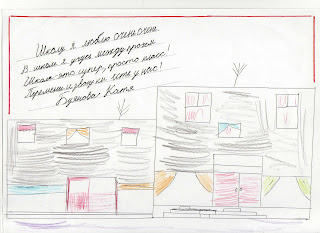 Школу я люблю очень очень.
В школе я учусь между прочем
Школа-это супер, просто класс!
Перемены и звонки есть у нас!
Буянова Катя